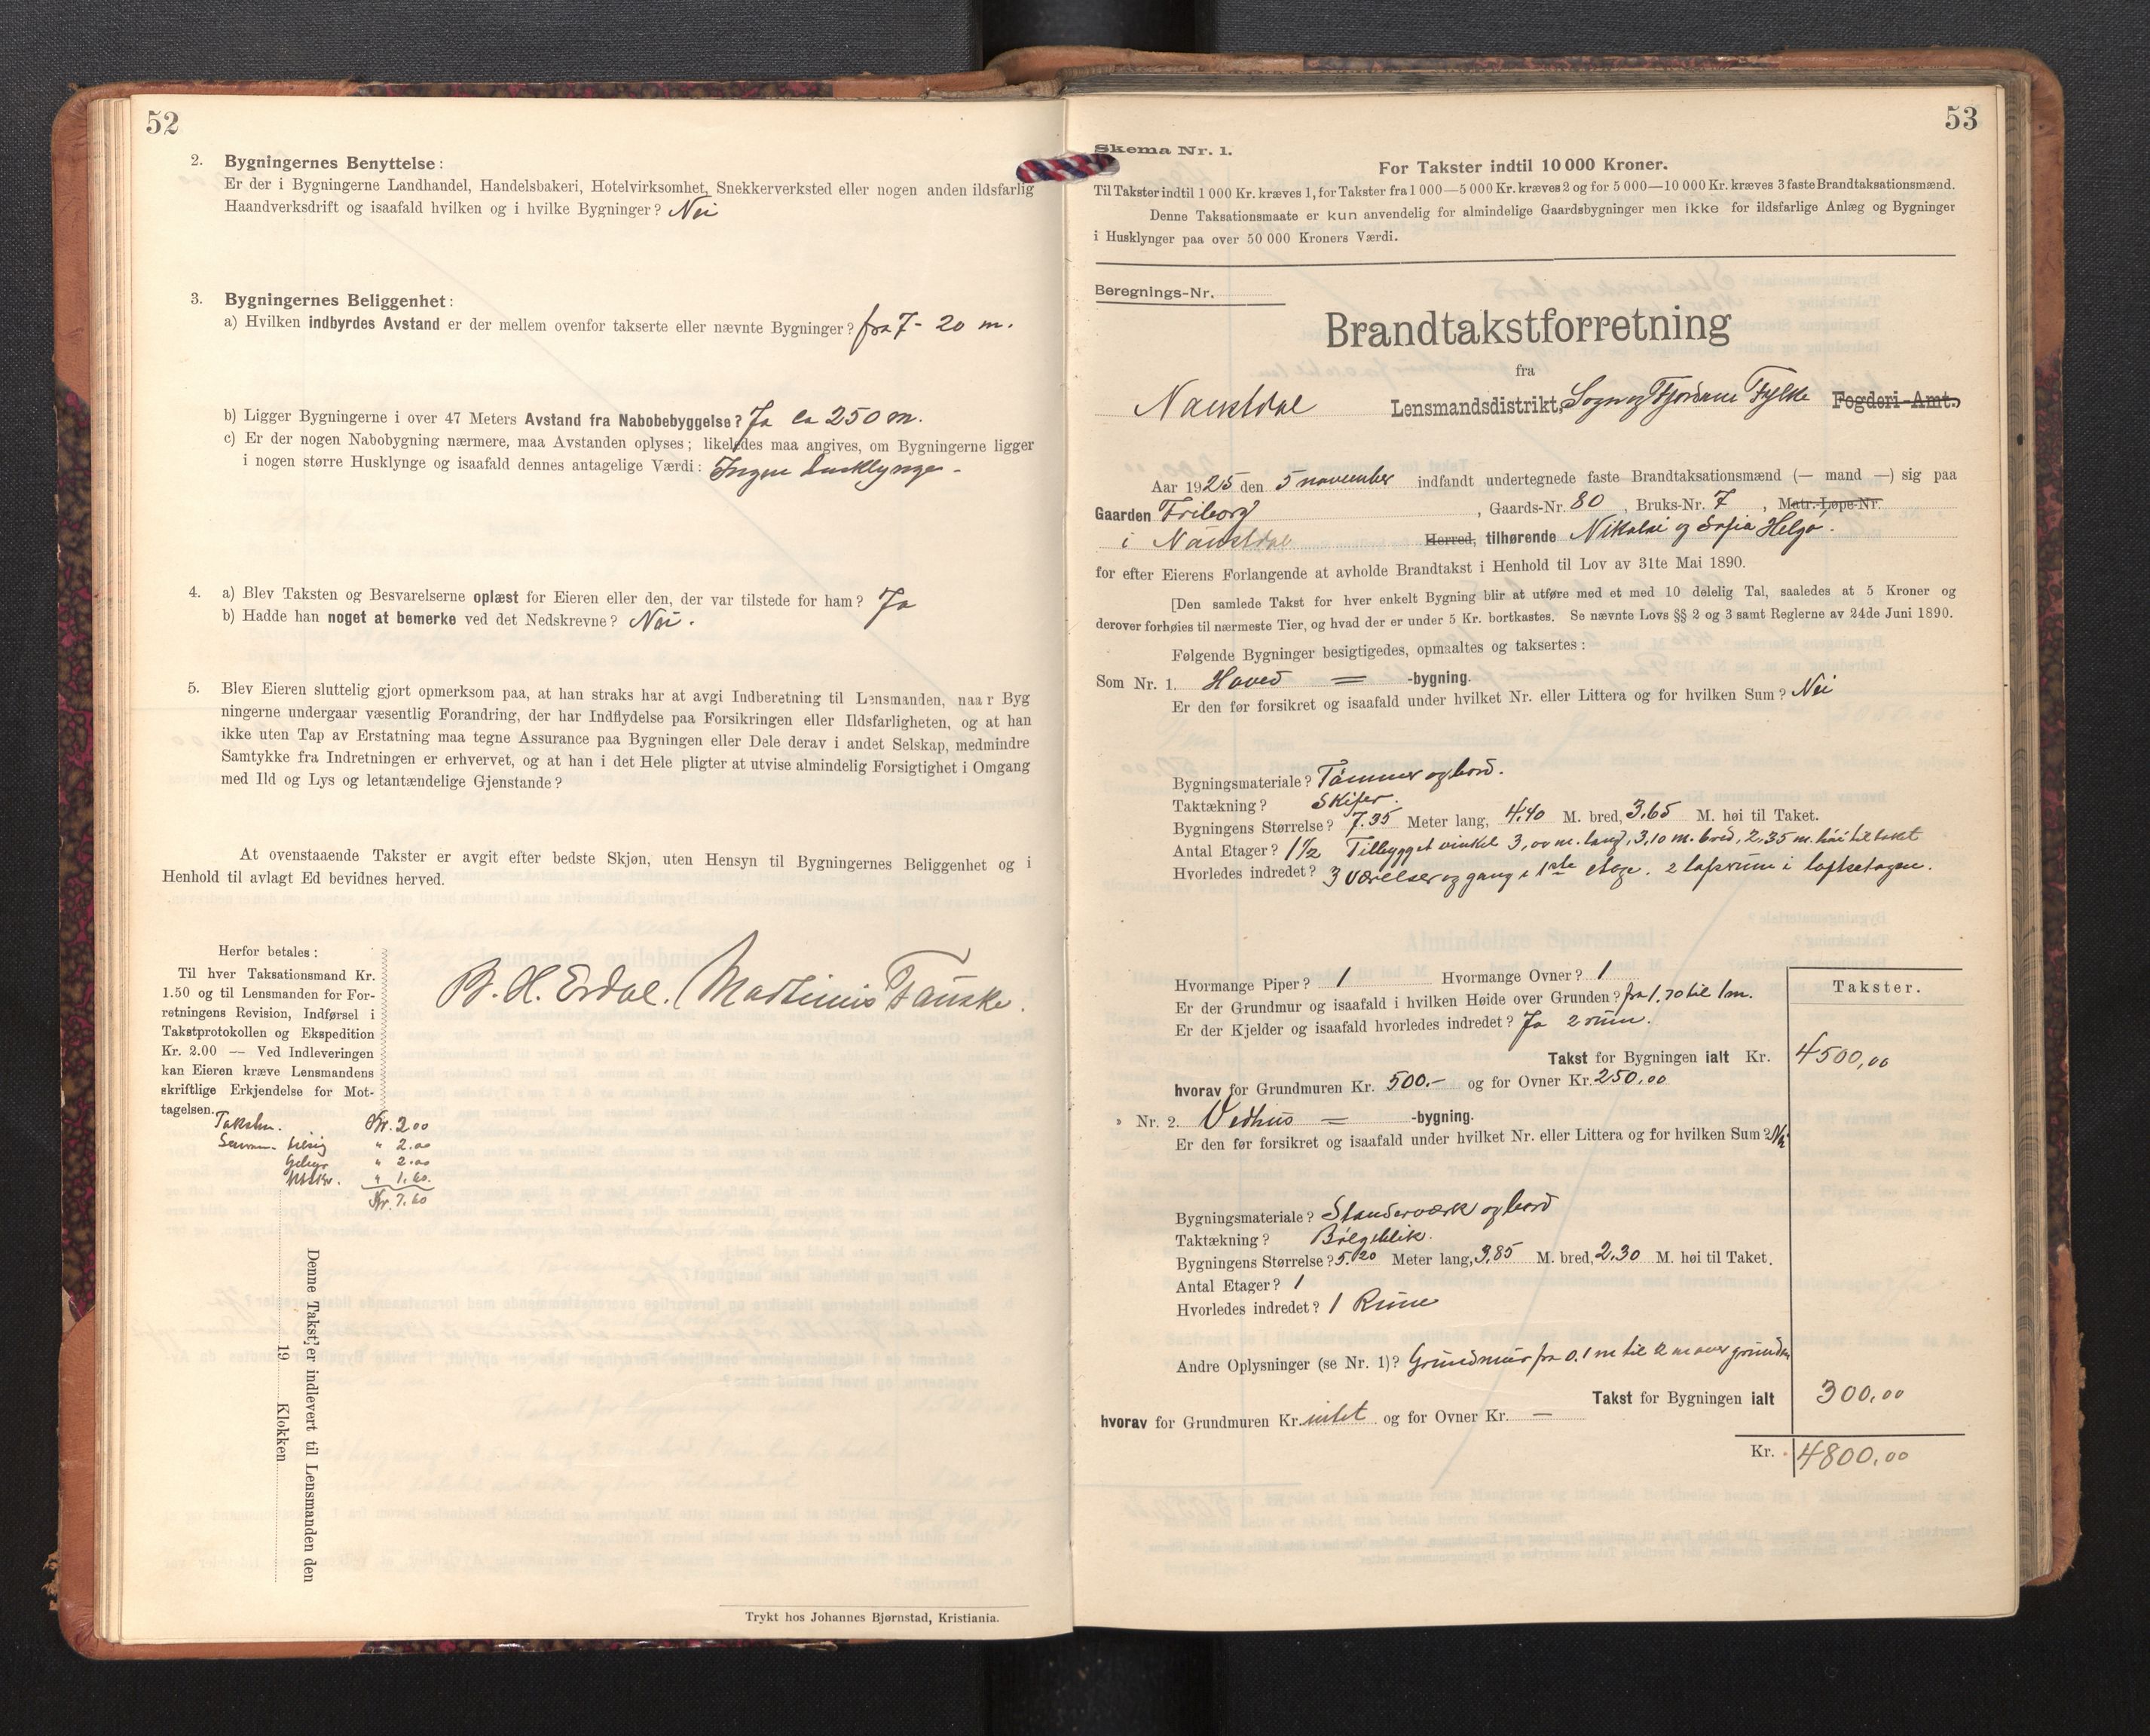 52
2. Bygningernes Benyttelse:
Er der i Bygningerne Landhandel, Handelsbakeri, Hotelvirksomhet, Snekkerverksted eller nogen anden ildsfarlig
Haandverksdrift og isaafald hvilken og i hvilke Bygninger? Nei
3. Bygningernes Beliggenhet:
a) Hvilken indbyrdes Avstand er der mellem ovenfor takserte eller nævnte Bygninger? fra 7 - 20 m.
b) Ligger Bygningerne i over 47 Meters Avstand fra Nabobebyggelse? Ja ca 250 m.
c) Er der nogen Nabobygning nærmere, maa Avstanden oplyses; likeledes maa angives, om Bygningerne ligger
i nogen større Husklynge og isaafald dennes antagelige Værdi: Ingen husklynge -
4. a) Blev Taksten og Besvarelserne oplæst for Eieren eller den, der var tilstede for ham? Ja
b) Hadde han noget at bemerke ved det Nedskrevne? Nei.
5. Blev Eieren sluttelig gjort opmerksom paa, at han straks har at avgi Indberetning til Lensmanden, naar Byg
ningerne undergaar væsentlig Forandring, der har Indflydelse paa Forsikringen eller Ildsfarligheten, og at han
ikke uten Tap av Erstatning maa tegne Assurance paa Bygningen eller Dele derav i andet Selskap, medmindre
Samtykke fra Indretningen er erhvervet, og at han i det Hele pligter at utvise almindelig Forsigtighet i Omgang
med Ild og Lys og letantændelige Gjenstande?
At ovenstaaende Takster er avgit efter bedste Skjøn, uten Hensyn til Bygningernes Beliggenhet og i
Henhold til avlagt Ed bevidnes herved.
B. H. Erdal. Martinus Fauske.
Herfor betales:
Til hver Taksationsmand Kr.
1.50 og til Lensmanden for For-
retningens Revision, Indførsel i
Takstprotokollen og Ekspedition
Kr. 2.00 — Ved Indleveringen
kan Eieren kræve Lensmandens
skriftlige Erkjendelse for Mot-
tagelsen.
Takstm. Kr. 2.00
" 2.00
Gebyr " 2.00
" 1.60.
Kr. 7.60
Denne Takst er indlevert til Lensmanden den
19 Klokken
Trykt hos Johannes Bjørnstad, Kristiania.
53
Skema Nr. 1.
For Takster indtil 10 000 Kroner.
Til Takster indtil 1 000 Kr. kræves 1, for Takster fra 1 000—5 000 Kr. kræves 2 og for 5 000—10 000 Kr. kræves 3 faste Brandtaksationsmænd.
Denne Taksationsmaate er kun anvendelig for almindelige Gaardsbygninger men ikke for ildsfarlige Anlæg og Bygninger
i Husklynger paa over 50 000 Kroners Værdi.
Beregnings-Nr.
Brandtakstforretning
fra
Naustdal Lensmandsdistrikt, Sogn og Fjordane Fylke Fogderi-Amt.
Aar 1925 den 5 november indfandt undertegnede faste Brandtaksationsmænd (— mand —) sig paa
Gaarden Friborg, Gaards-Nr. 80, Bruks-Nr. 7, Matr.-Løpe-Nr.
i Naustdal Herred, tilhørende Nikolai og Sofia Helgø.
for efter Eierens Forlangende at avholde Brandtakst i Henhold til Lov av 31te Mai 1890.
[Den samlede Takst for hver enkelt Bygning blir at utføre med et med 10 delelig Tal, saaledes at 5 Kroner og
derover forhøies til nærmeste Tier, og hvad der er under 5 Kr. bortkastes. Se nævnte Lovs §§ 2 og 3 samt Reglerne av 24de Juni 1890.
Følgende Bygninger besigtigedes, opmaaltes og taksertes:
Som Nr. 1. Hoved = -bygning.
Er den før forsikret og isaafald under hvilket Nr. eller Littera og for hvilken Sum? Nei
Bygningsmateriale? Tømmer og bord.
Taktækning? Skifer.
Bygningens Størrelse? 7.35 Meter lang, 4.40 M. bred, 3.65 M. høi til Taket.
Antal Etager? 1½ Tilbygget vinkel 3,00 m. lang, 3,10 m. bred, 2,35 m. høi til taket
Hvorledes indredet? 3 værelser og gang i 1ste etage. 2 loftsrum i loftsetagen.
Hvormange Piper? 1 Hvormange Ovner? 1
Er der Grundmur og isaafald i hvilken Høide over Grunden? fra 1.70 til 1 m.
Er der Kjelder og isaafald hvorledes indredet? Ja 2 rum.
Takster.
Takst for Bygningen ialt Kr. 4500,00
hvorav for Grundmuren Kr. 500.- og for Ovner Kr. 250,00
» Nr. 2. Vedhus = -bygning.
Er den før forsikret og isaafald under hvilket Nr. eller Littera og for hvilken Sum? Nei
Bygningsmateriale? Standerværk og bord
Taktækning? Bølgeblik.
Bygningens Størrelse? 5.20 Meter lang, 3.85 M. bred, 2.30 M. høi til Taket.
Antal Etager? 1
Hvorledes indredet? 1 Rum
Andre Oplysninger (se Nr. 1)? Grundmur fra 0.1 m til 2 m over grunden
Takst for Bygningen ialt 300,00
hvorav for Grundmuren Kr. intet og for Ovner Kr. —
Kr. 4800,00